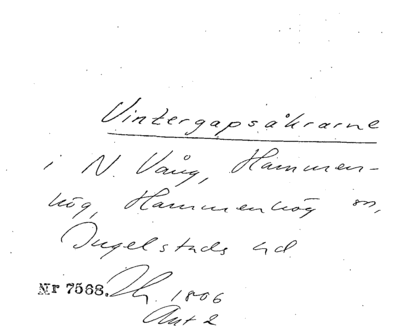 Vintergapsåkrarne
i N. Vång, Hammen-
hög, Hammenhög sn,
Ingelstads hd
Nr 7568. 1806
Akt 2